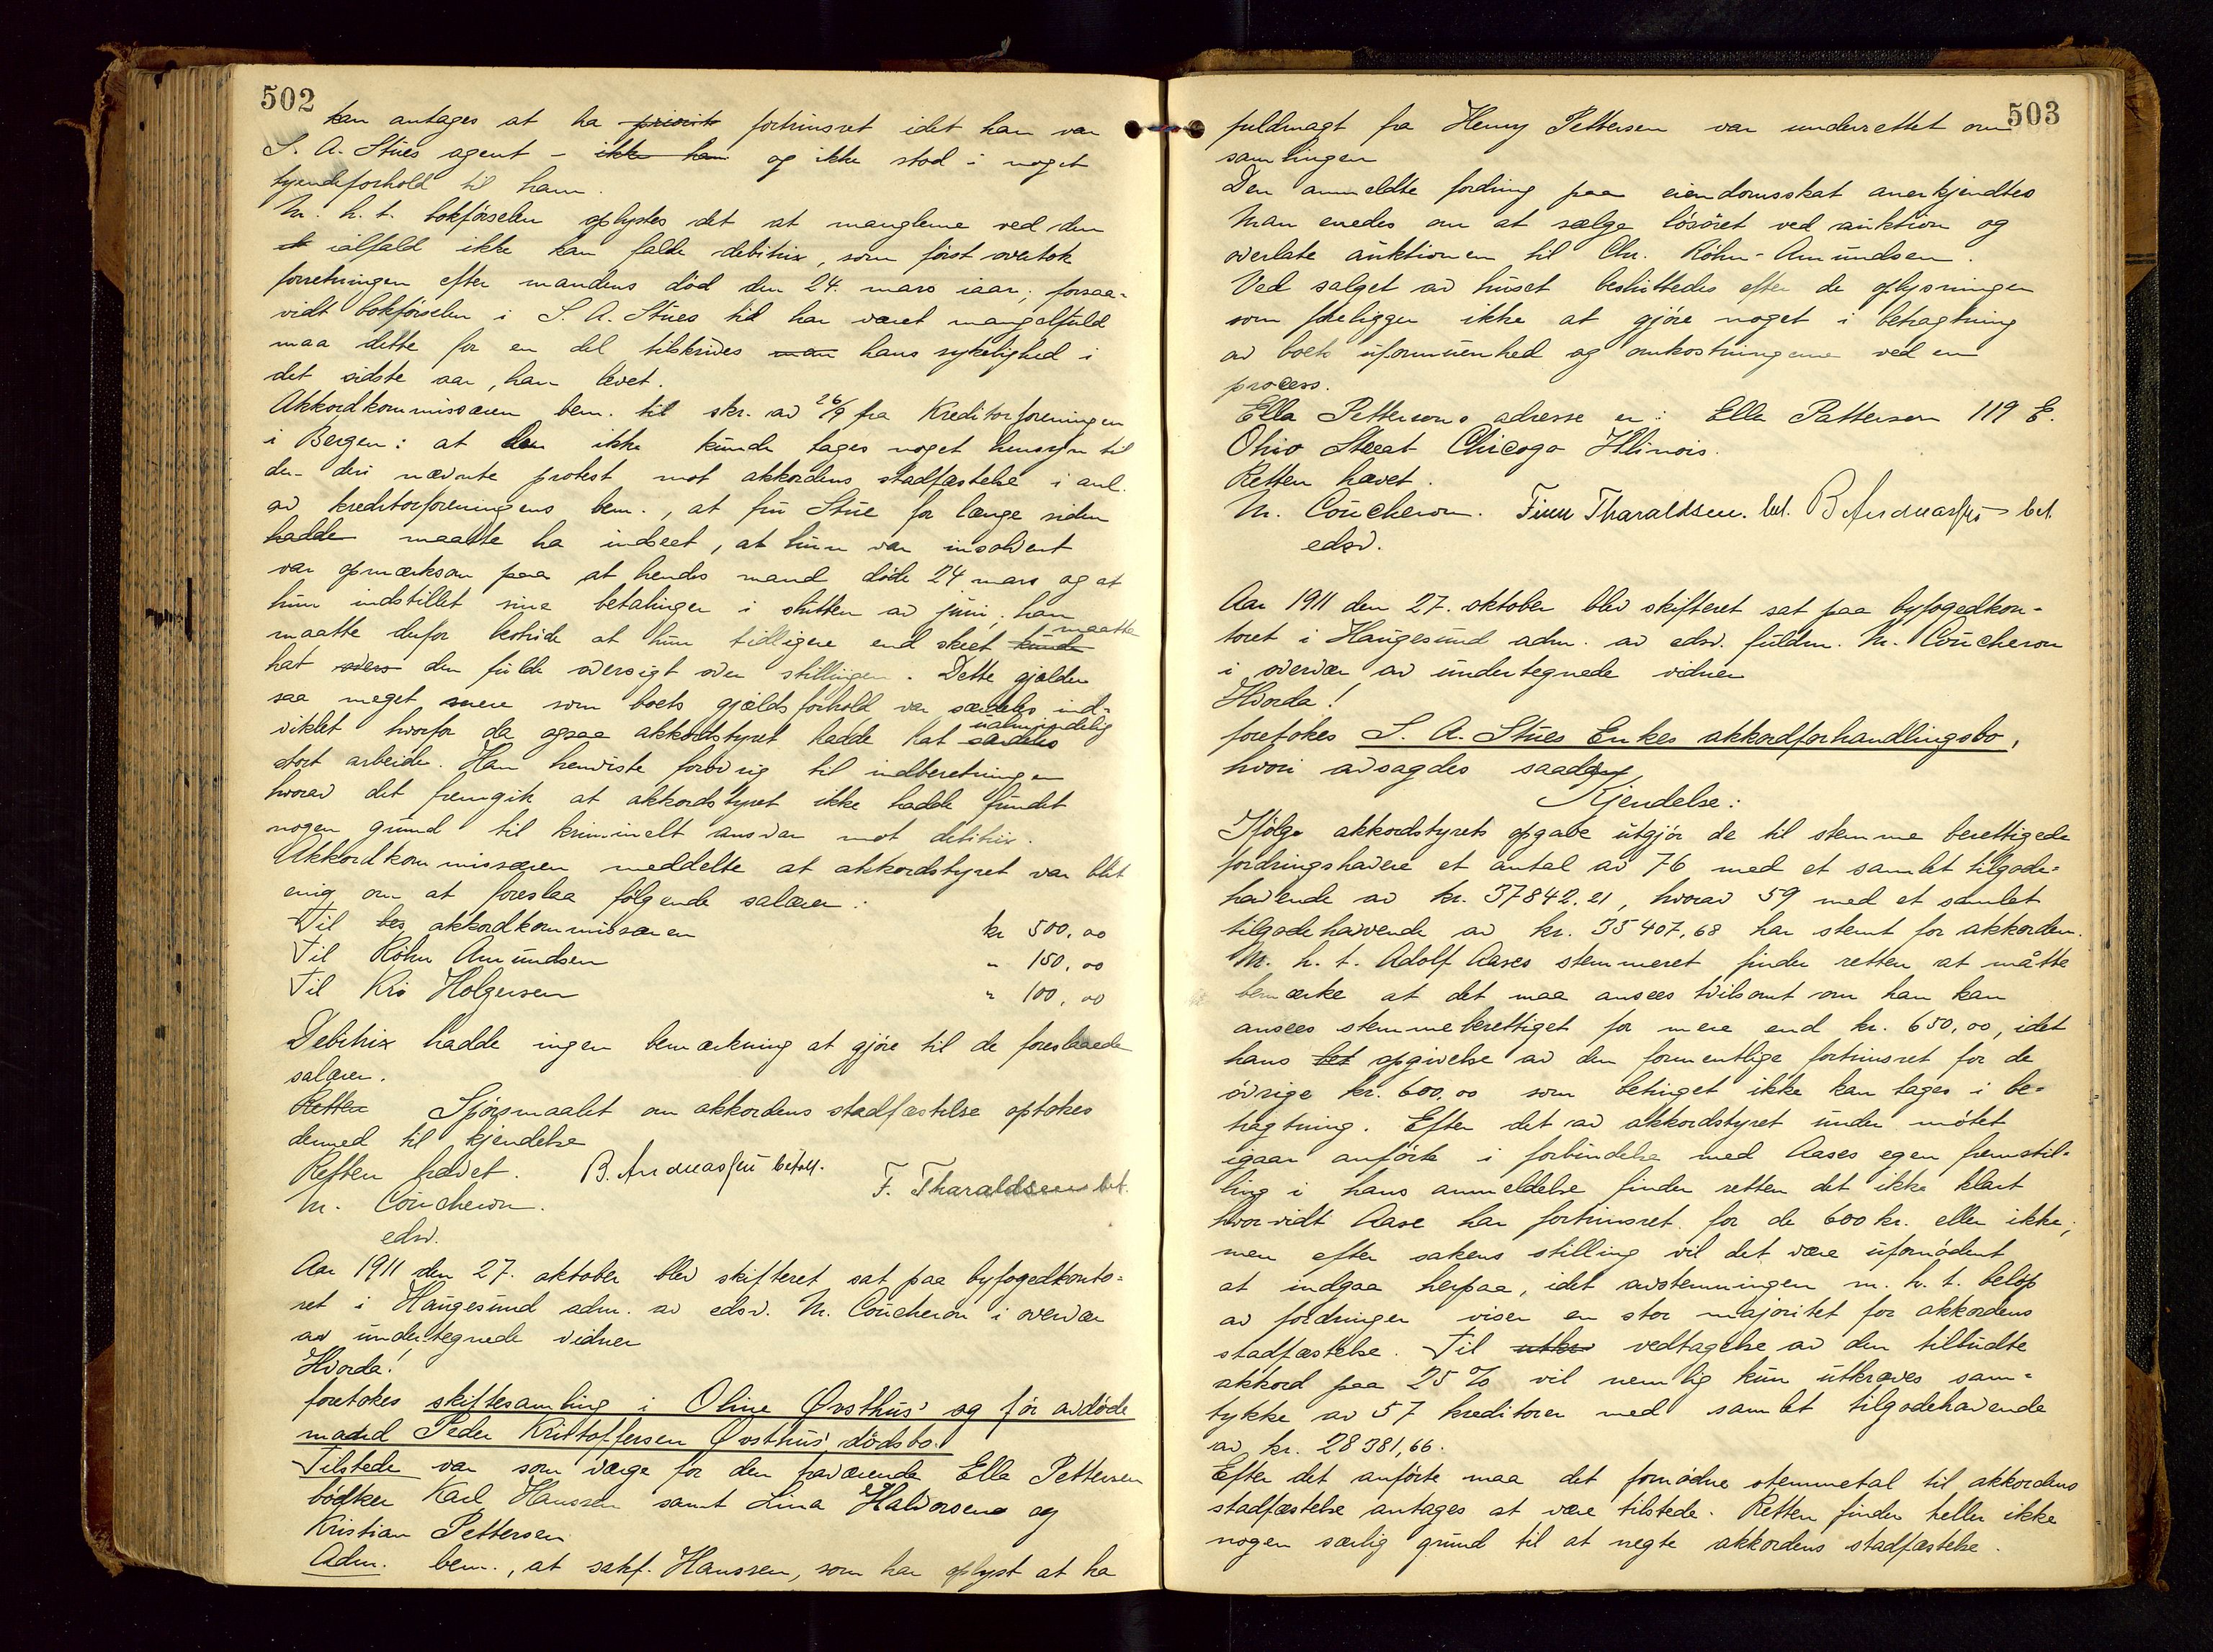 502
kan antages at ha priorit fortrinsret idet han var
S. A. Stües agent - ikke han og ikke stod i noget
tyendeforhold til ham.
M. h. t. bokførselen oplystes det at manglerne ved den
ialfald ikke kan falde debitrix, som først overtok
forretningen efter mandens død den 24. mars iaar; forsaa-
vidt bokførselen i S. A. Stües tid har været mangelfuld
maa dette for en del tilskrives man hans sykelighed i
det sidste aar, han levet.
Akkordkommissæren bem. til skr. av 26/9 fra Kreditorforeningen
i Bergen: at der ikke kunde tages noget hensyn til
den deri nævnte protest mot akkordens stadfæstelse i anl.
av kreditorforeningens bem., at frü Stüe for længe siden
hadde maatte ha indseet, at hun var insolvent
var opmerksom paa at hendes mand døde 24 mars og at
hün indstillet sine betalinger i slütten av jüni, han
maatte derfor bestride at hün tidligere end skeet kunde maatte
hat overs den fülde oversigt over stillingen. Dette gjælder
saa meget mere som boets gjældsforhold var særdeles ind-
viklet hvorfor da ogsaa akkordstyret hadde hat særdeles üalmindelig
stort arbeide. Han henviste forøvrig til indberetningen
hvorav det fremgik at akkordstyret ikke hadde fündet
nogen gründ til kriminelt ansvar mot debitrix.
Akkordkommissæren meddelte at akkordstyret var blit
enig om at foreslaa følgende salærer:
Til bes akkordkommissæren kr 500,00
Til Röhn Amündsen " 150,00
Til Kris Holgersen " 100,00
Debitrix hadde ingen bemerkning at gjøre til de foreslaaede
salærer.
Retten Spørsmaalet om akkordens stadfæstelse optokes
dermed til kjendelse
Retten hævet. B. Andreassen betalt. F. Tharaldsen bet.
M. Coucheron.
edsv.
Aar 1911 den 27. oktober blev skifteret sat paa byfogedkonto-
ret i Haugesund adm. av edsv. M. Coucheron i overvær
av undertegnede vidner
Hvorda!
foretokes skiftesamling i Oline Øvsthüs' og før avdøde
mand Peder Kristoffersen Øvsthüs' dødsbo.
Tilstede var som værge for den fraværende Ella Pettersen
bødker Karl Hanssen samt Lina Halvorsen og
Kristian Pettersen.
Adm. bem., at sakf. Hanssen, som har oplyst at ha
503
fuldmagt fra Henry Pettersen var underrettet om
samlingen
Den anmeldte fordring paa eiendomsskat anerkjendtes
Man enedes om at sælge løsøret ved auktion og
overlate auktionen til Chr. Röhn-Amündsen.
Ved salget av hüset beslüttedes efter de oplysninger
som foreligger ikke at gjøre noget i betragtning
av boets üformüenhed og omkostningerne ved en
process.
Ella Pettersons adresse er: Ella Patterson 119 E.
Ohio Street Chicago Illinois.
Retten hævet.
M. Coucheron. Finn Tharaldsen. bet. B Andreassen bet.
edsv.
Aar 1911 den 27. oktober blev skifteret sat paa byfogedkon-
toret i Haugesund adm. av edsv. fuldm. M. Coucheron
i overvær av undertegnede vidner
Hvorda!
foretokes S. A. Stües Enkes akkordforhandlingsbo,
hvori avsagdes saadan
Kjendelse:
Ifølge akkordstyrets opgave utgjør de til stemme berettigede
fordringshavere et antal av 76 med et samlet tilgode-
havende av kr. 37842.21, hvorav 59 med et samlet
tilgodehavende av kr. 35407,68 har stemt for akkorden.
M. h. t. Adolf Aases stemmeret finder retten at måtte
bemærke at det maa ansees tvilsomt om han kan
ansees stemmeberettiget for mere end kr. 650,00, idet
hans bet opgivelse av den formentlige fortrinsret for de
øvrige kr. 600,00 som betinget ikke kan tages i be-
tragtning. Efter det av akkordstyret ünder møtet
igaar anførte i forbindelse med Aases egen fremstil-
ling i hans anmeldelse finder retten det ikke klart
hvorvidt Aase har fortrinsret for de 600 kr. eller ikke;
men efter sakens stilling vil det være üfornødent
at indgaa herpaa, idet avstemningen m. h. t. beløp
av fordringer viser en stor majoritet for akkordens
stadfæstelse. Til utkr vedtagelse av den tilbüdte
akkord paa 25 % vil nemlig kün ütkræves sam-
tykke av 57 kreditorer med samlet tilgodehavende
av kr. 28381,66.
Efter det anførte maa det fornødne stemmetal til akkordens
stadfæstelse antages at være tilstede. Retten finder heller ikke
nogen særlig gründ til at negte akkordens stadfæstelse.